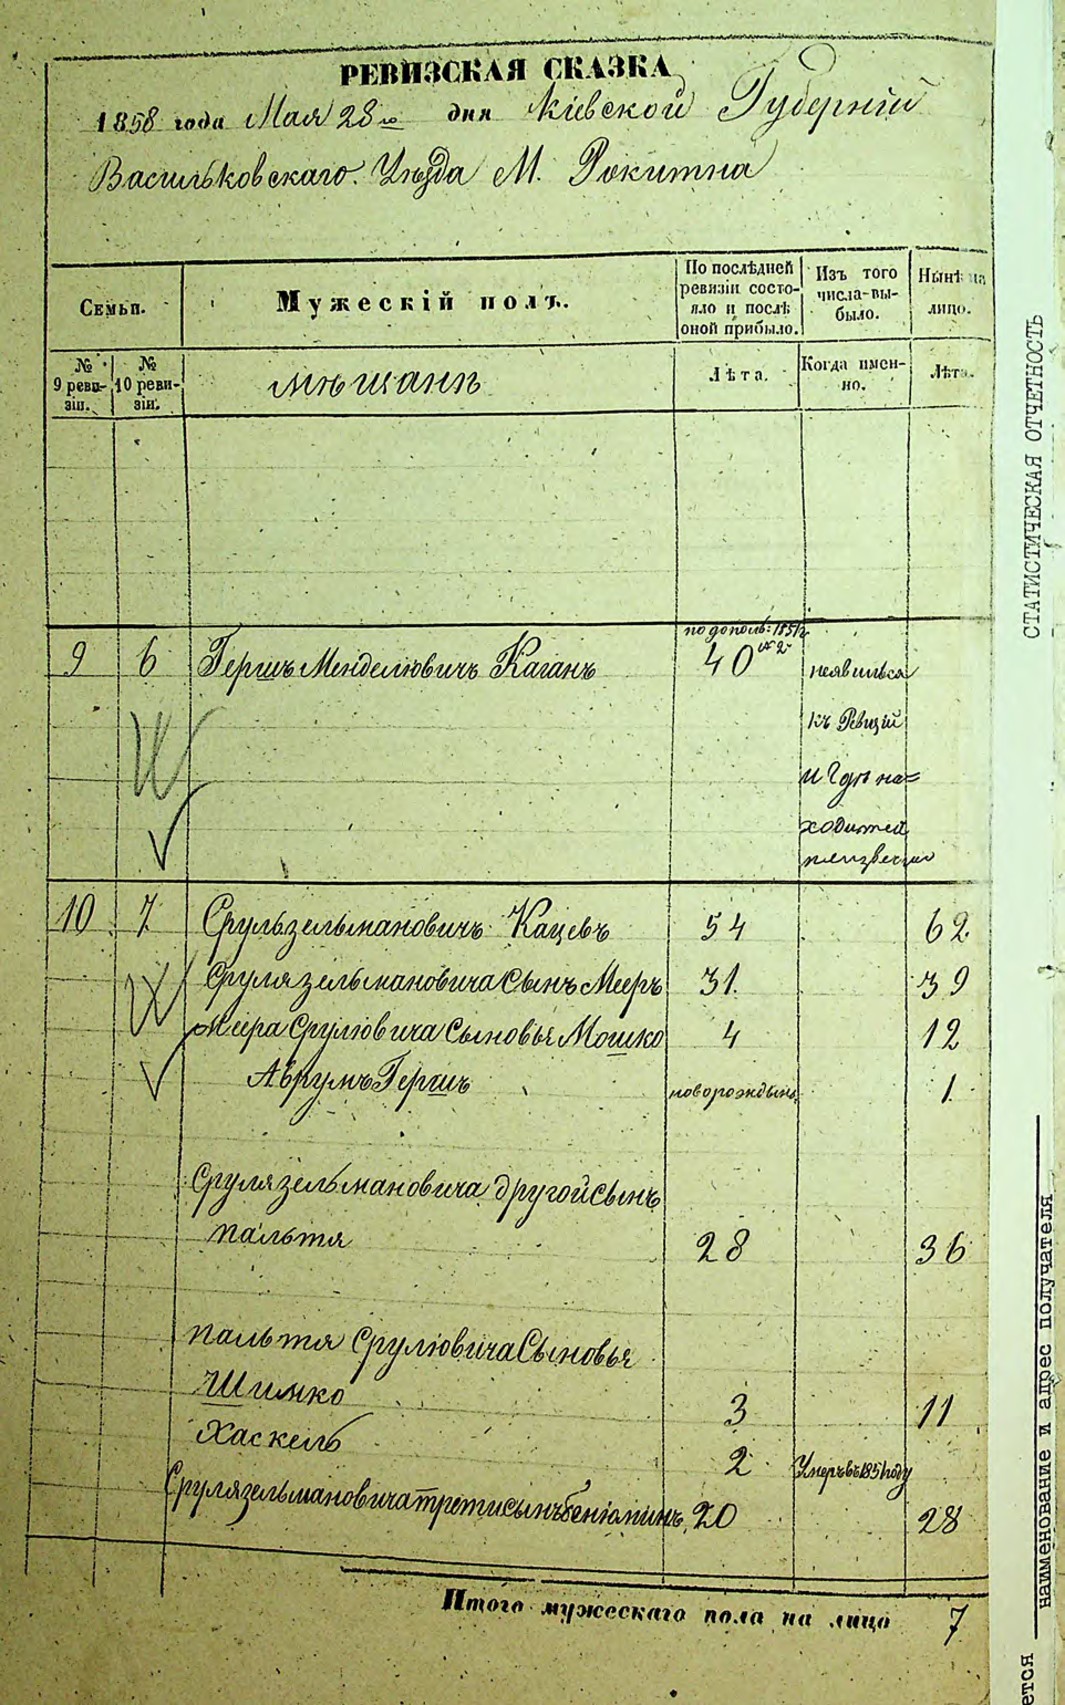 РЕВИЗСКАЯ СКАЗКА
1858 года Мая 28го дня Кіевской Губерніи
Васильковскаго Уѣзда М. Рокитна
Семьи.
Мужескій полъ.
По послѣдней ревизіи состояло и послѣ оной прибыло.
Изъ того числа-выбыло.
Нынѣ на лицо.
№ 9 ревизіи.
№ 10 ревизіи.
мѣщанѣ
Лѣта.
Когда именно.
Лѣта.
по дополн: 1851 г
9 6 Гершъ Менделювичъ Каганъ 40 неявилься
къ Ревизіи
и Где на=
ходится
неизвестно
10 7 Срульзельмановичъ Кацевъ 54 62
Сруля зельмановича Сынъ Мееръ 31 39
Меера Срулювича Сыновья Мошко 4 12
Аврумъ Гершъ новорожденъ 1
Сруля зельмановича другой Сынъ
пальтя 28 36
пальтя Срулювича Сыновья
Шимко 3 11
Хаскель 2 Умеръ въ 1851 году
Сруля зельмановича трети сынъ беніоминъ 20 28
Итого мужескаго пола на лицо 7
СТАТИСТИЧЕСКАЯ ОТЧЕТНОСТЬ
наименование и адрес получателя
ется